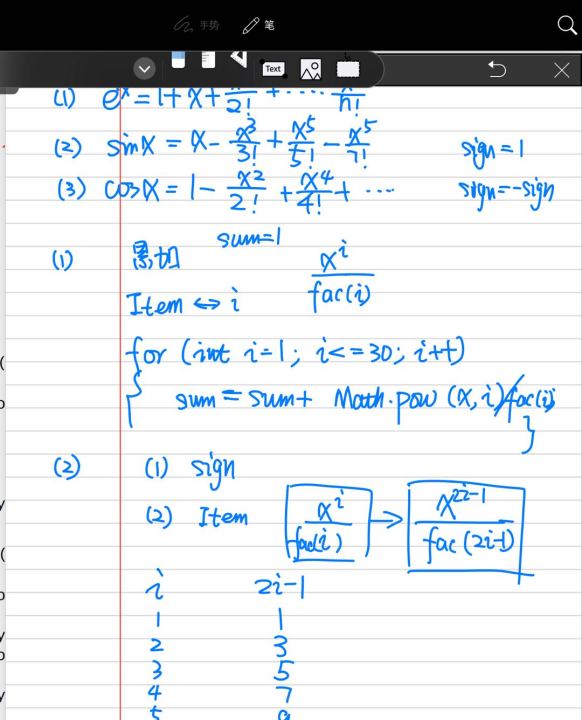 手势 笔
Text
(1) e^x = 1 + x + x^2/2! + .... x^n/n!
(2) sinx = x - x^3/3! + x^5/5! - x^5/7! sign = 1
(3) cosx = 1 - x^2/2! + x^4/4! + ... sign = -sign
(1) 累加 sum=1 x^i/fac(i)
Item ↔ i
for (int i=1; i<=30; i++)
{ sum = sum + Math.pow (x, i)/fac(i)
}
(2) (1) sign
(2) Item x^i/fac(i) → x^(2i-1)/fac(2i-1)
i 2i-1
1 1
2 3
3 5
4 7
5 9